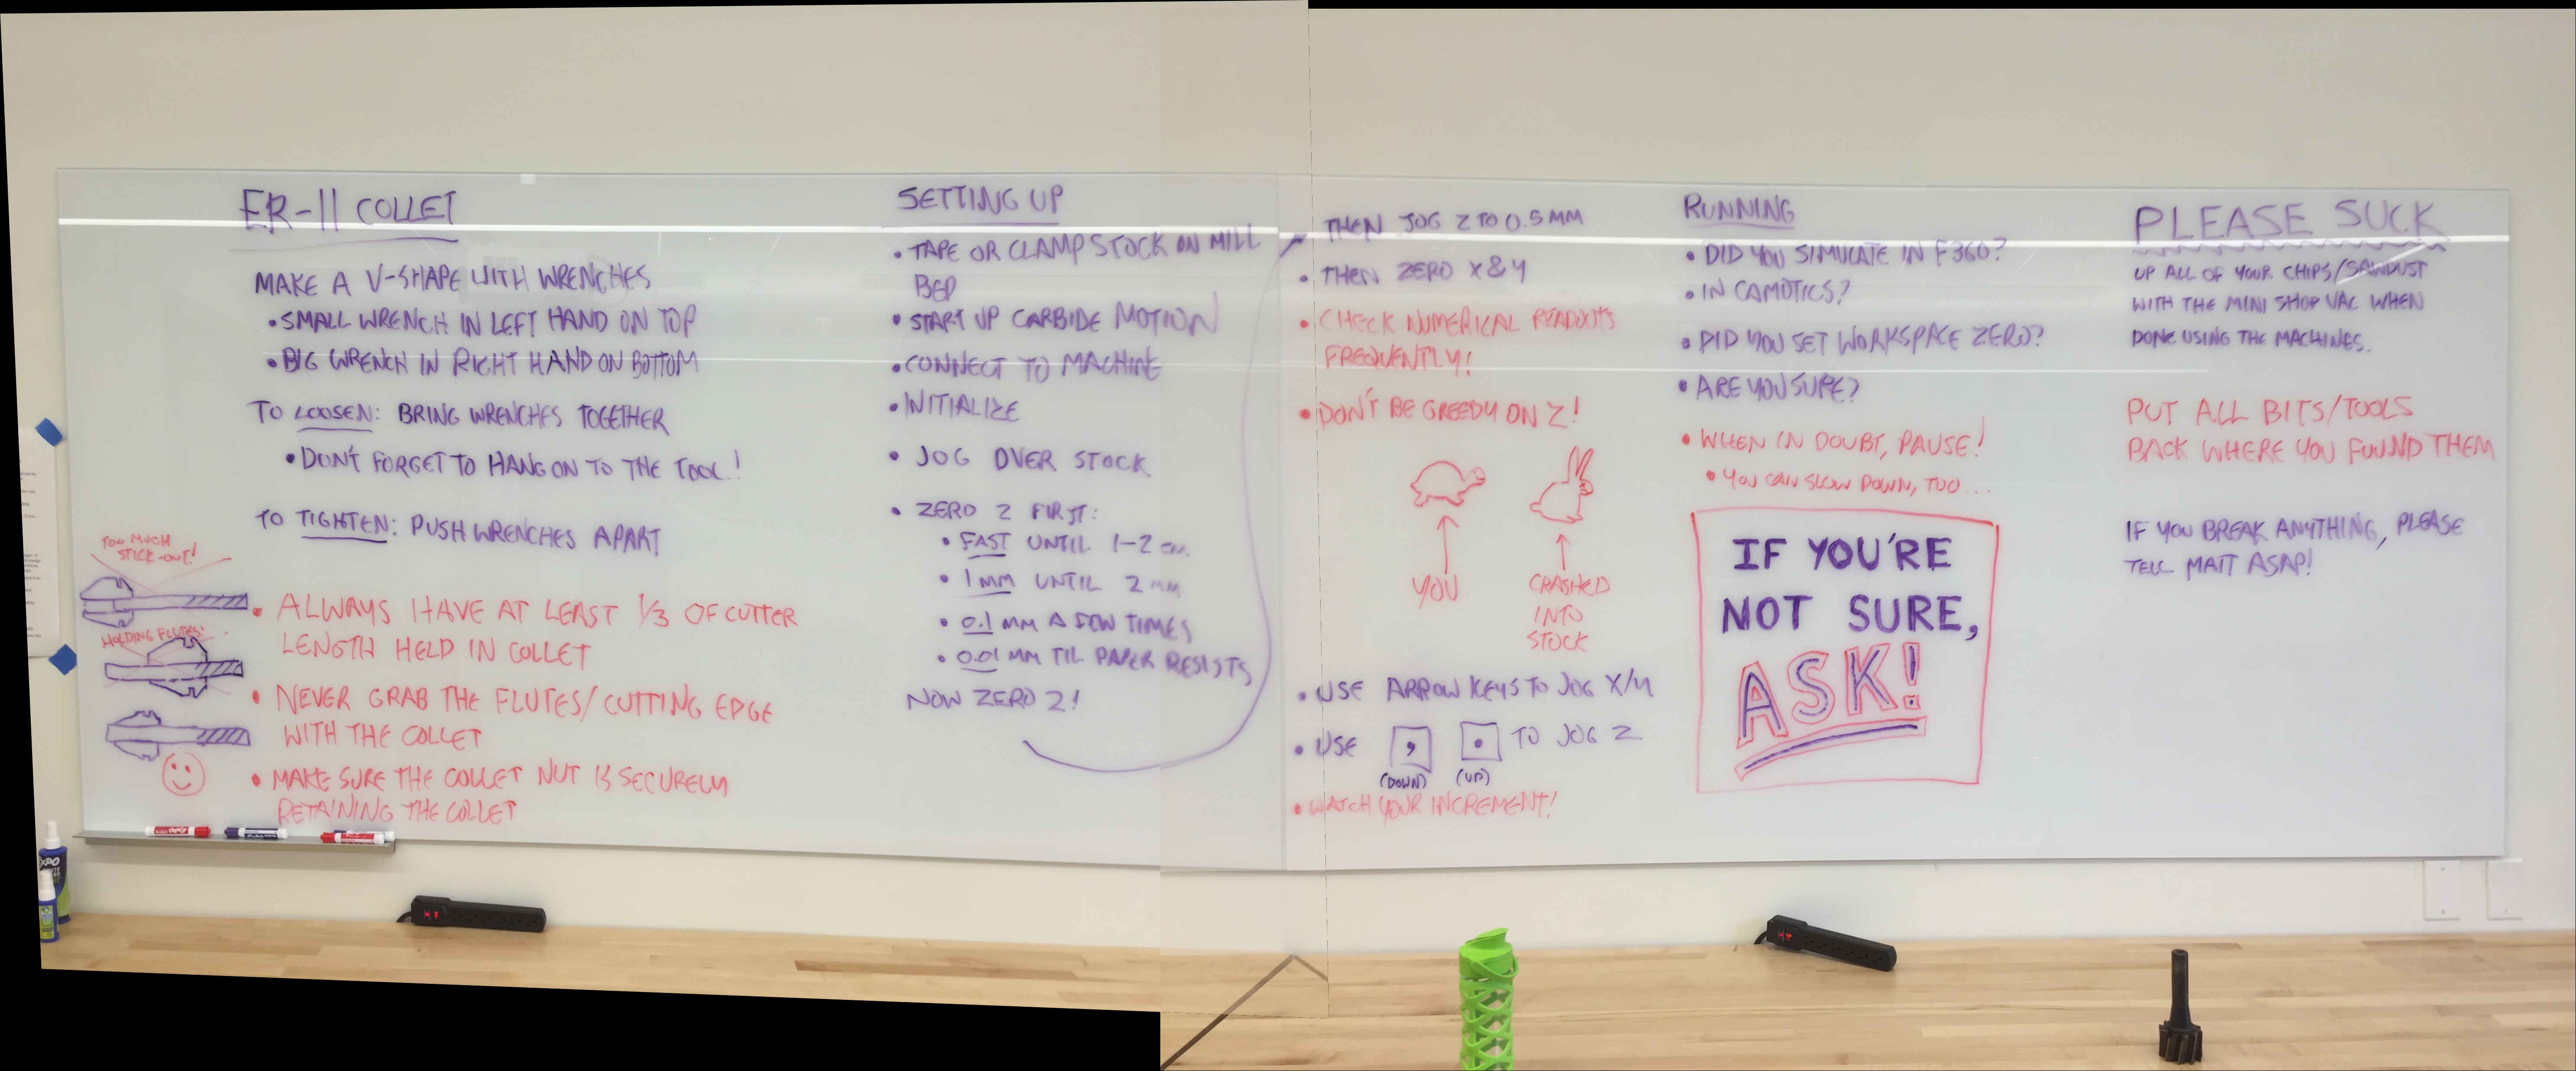 ER-11 COLLET
MAKE A V-SHAPE WITH WRENCHES
• SMALL WRENCH IN LEFT HAND ON TOP
• BIG WRENCH IN RIGHT HAND ON BOTTOM
TO LOOSEN: BRING WRENCHES TOGETHER
• DON'T FORGET TO HANG ON TO THE TOOL!
TO TIGHTEN: PUSH WRENCHES APART
TOO MUCH
STICK-OUT!
HOLDING FLUTES!
• ALWAYS HAVE AT LEAST 1/3 OF CUTTER
LENGTH HELD IN COLLET
• NEVER GRAB THE FLUTES/CUTTING EDGE
WITH THE COLLET
• MAKE SURE THE COLLET NUT IS SECURELY
RETAINING THE COLLET
SETTING UP
• TAPE OR CLAMP STOCK ON MILL
BED
• START UP CARBIDE MOTION
• CONNECT TO MACHINE
• INITIALIZE
• JOG OVER STOCK
• ZERO Z FIRST:
• FAST UNTIL 1-2 cm
• 1 MM UNTIL 2 MM
• 0.1 MM A FEW TIMES
• 0.01 MM TIL PAPER RESISTS
NOW ZERO Z!
THEN JOG Z TO 0.5 MM
• THEN ZERO X & Y
• CHECK NUMERICAL READOUTS
FREQUENTLY!
• DON'T BE GREEDY ON Z!
YOU
CRASHED
INTO
STOCK
• USE ARROW KEYS TO JOG X/Y
• USE , . TO JOG Z
(DOWN) (UP)
• WATCH YOUR INCREMENT!
RUNNING
• DID YOU SIMULATE IN F360?
• IN CAMOTICS?
• DID YOU SET WORKSPACE ZERO?
• ARE YOU SURE?
• WHEN IN DOUBT, PAUSE!
• YOU CAN SLOW DOWN, TOO...
IF YOU'RE
NOT SURE,
ASK!
PLEASE SUCK
UP ALL OF YOUR CHIPS/SAWDUST
WITH THE MINI SHOP VAC WHEN
DONE USING THE MACHINES.
PUT ALL BITS/TOOLS
BACK WHERE YOU FOUND THEM
IF YOU BREAK ANYTHING, PLEASE
TELL MATT ASAP!